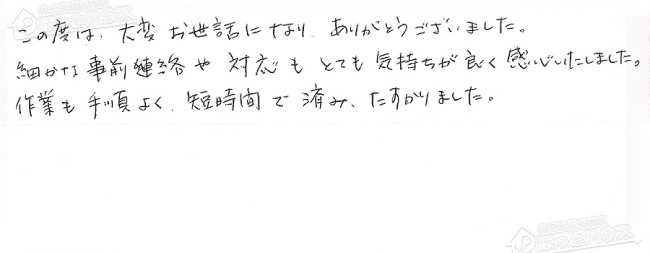 この度は、大変お世話になり、ありがとうございました。
細かな事前連絡や対応もとても気持ちが良く感じいたしました。
作業も手順よく、短時間で済み、たすかりました。